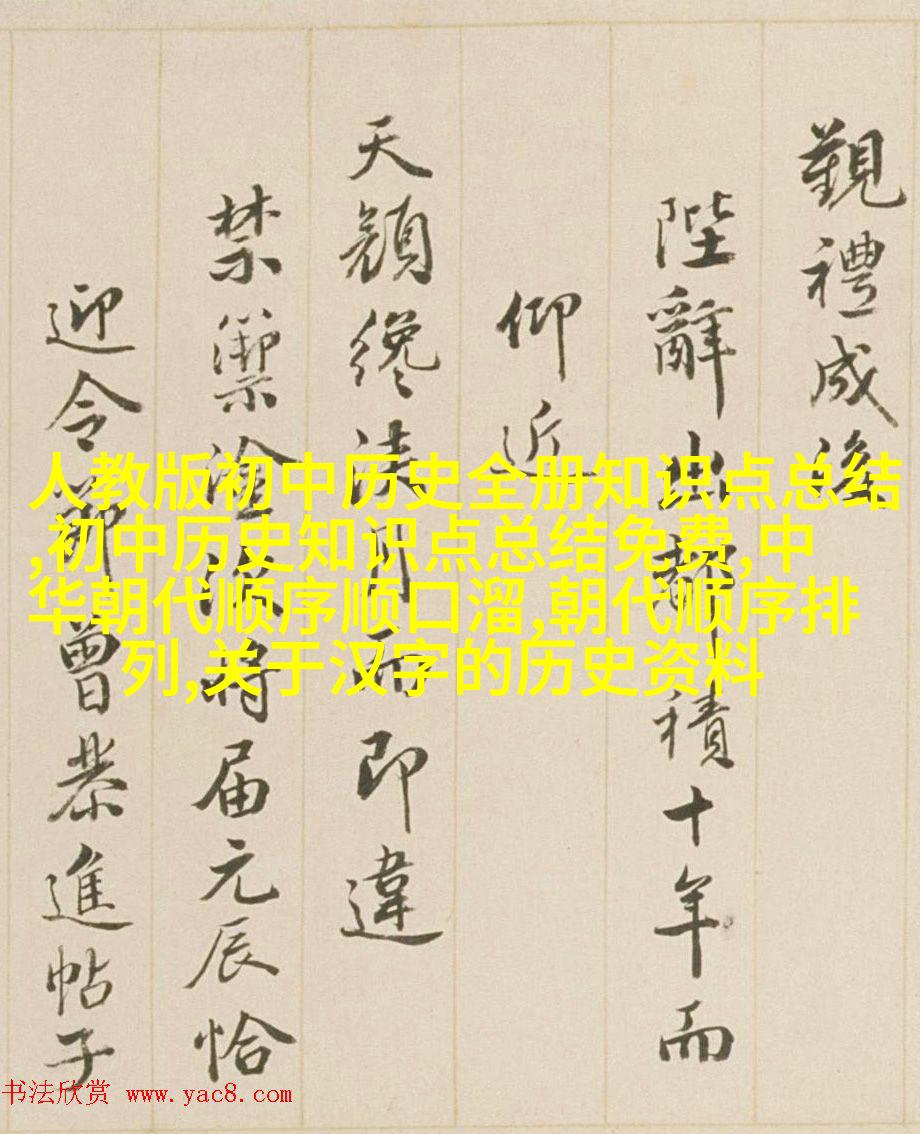 覲禮成後
陛辭出都積十年而
仰近
天顏纔浹月而即違
禁籞將届元辰恰
迎令節曾恭進帖子
人教版初中历史全册知识点总结
,初中历史知识点总结免费,中
华朝代顺序顺口溜,朝代顺序排
列,关于汉字的历史资料
书法欣赏 www.yac8.com